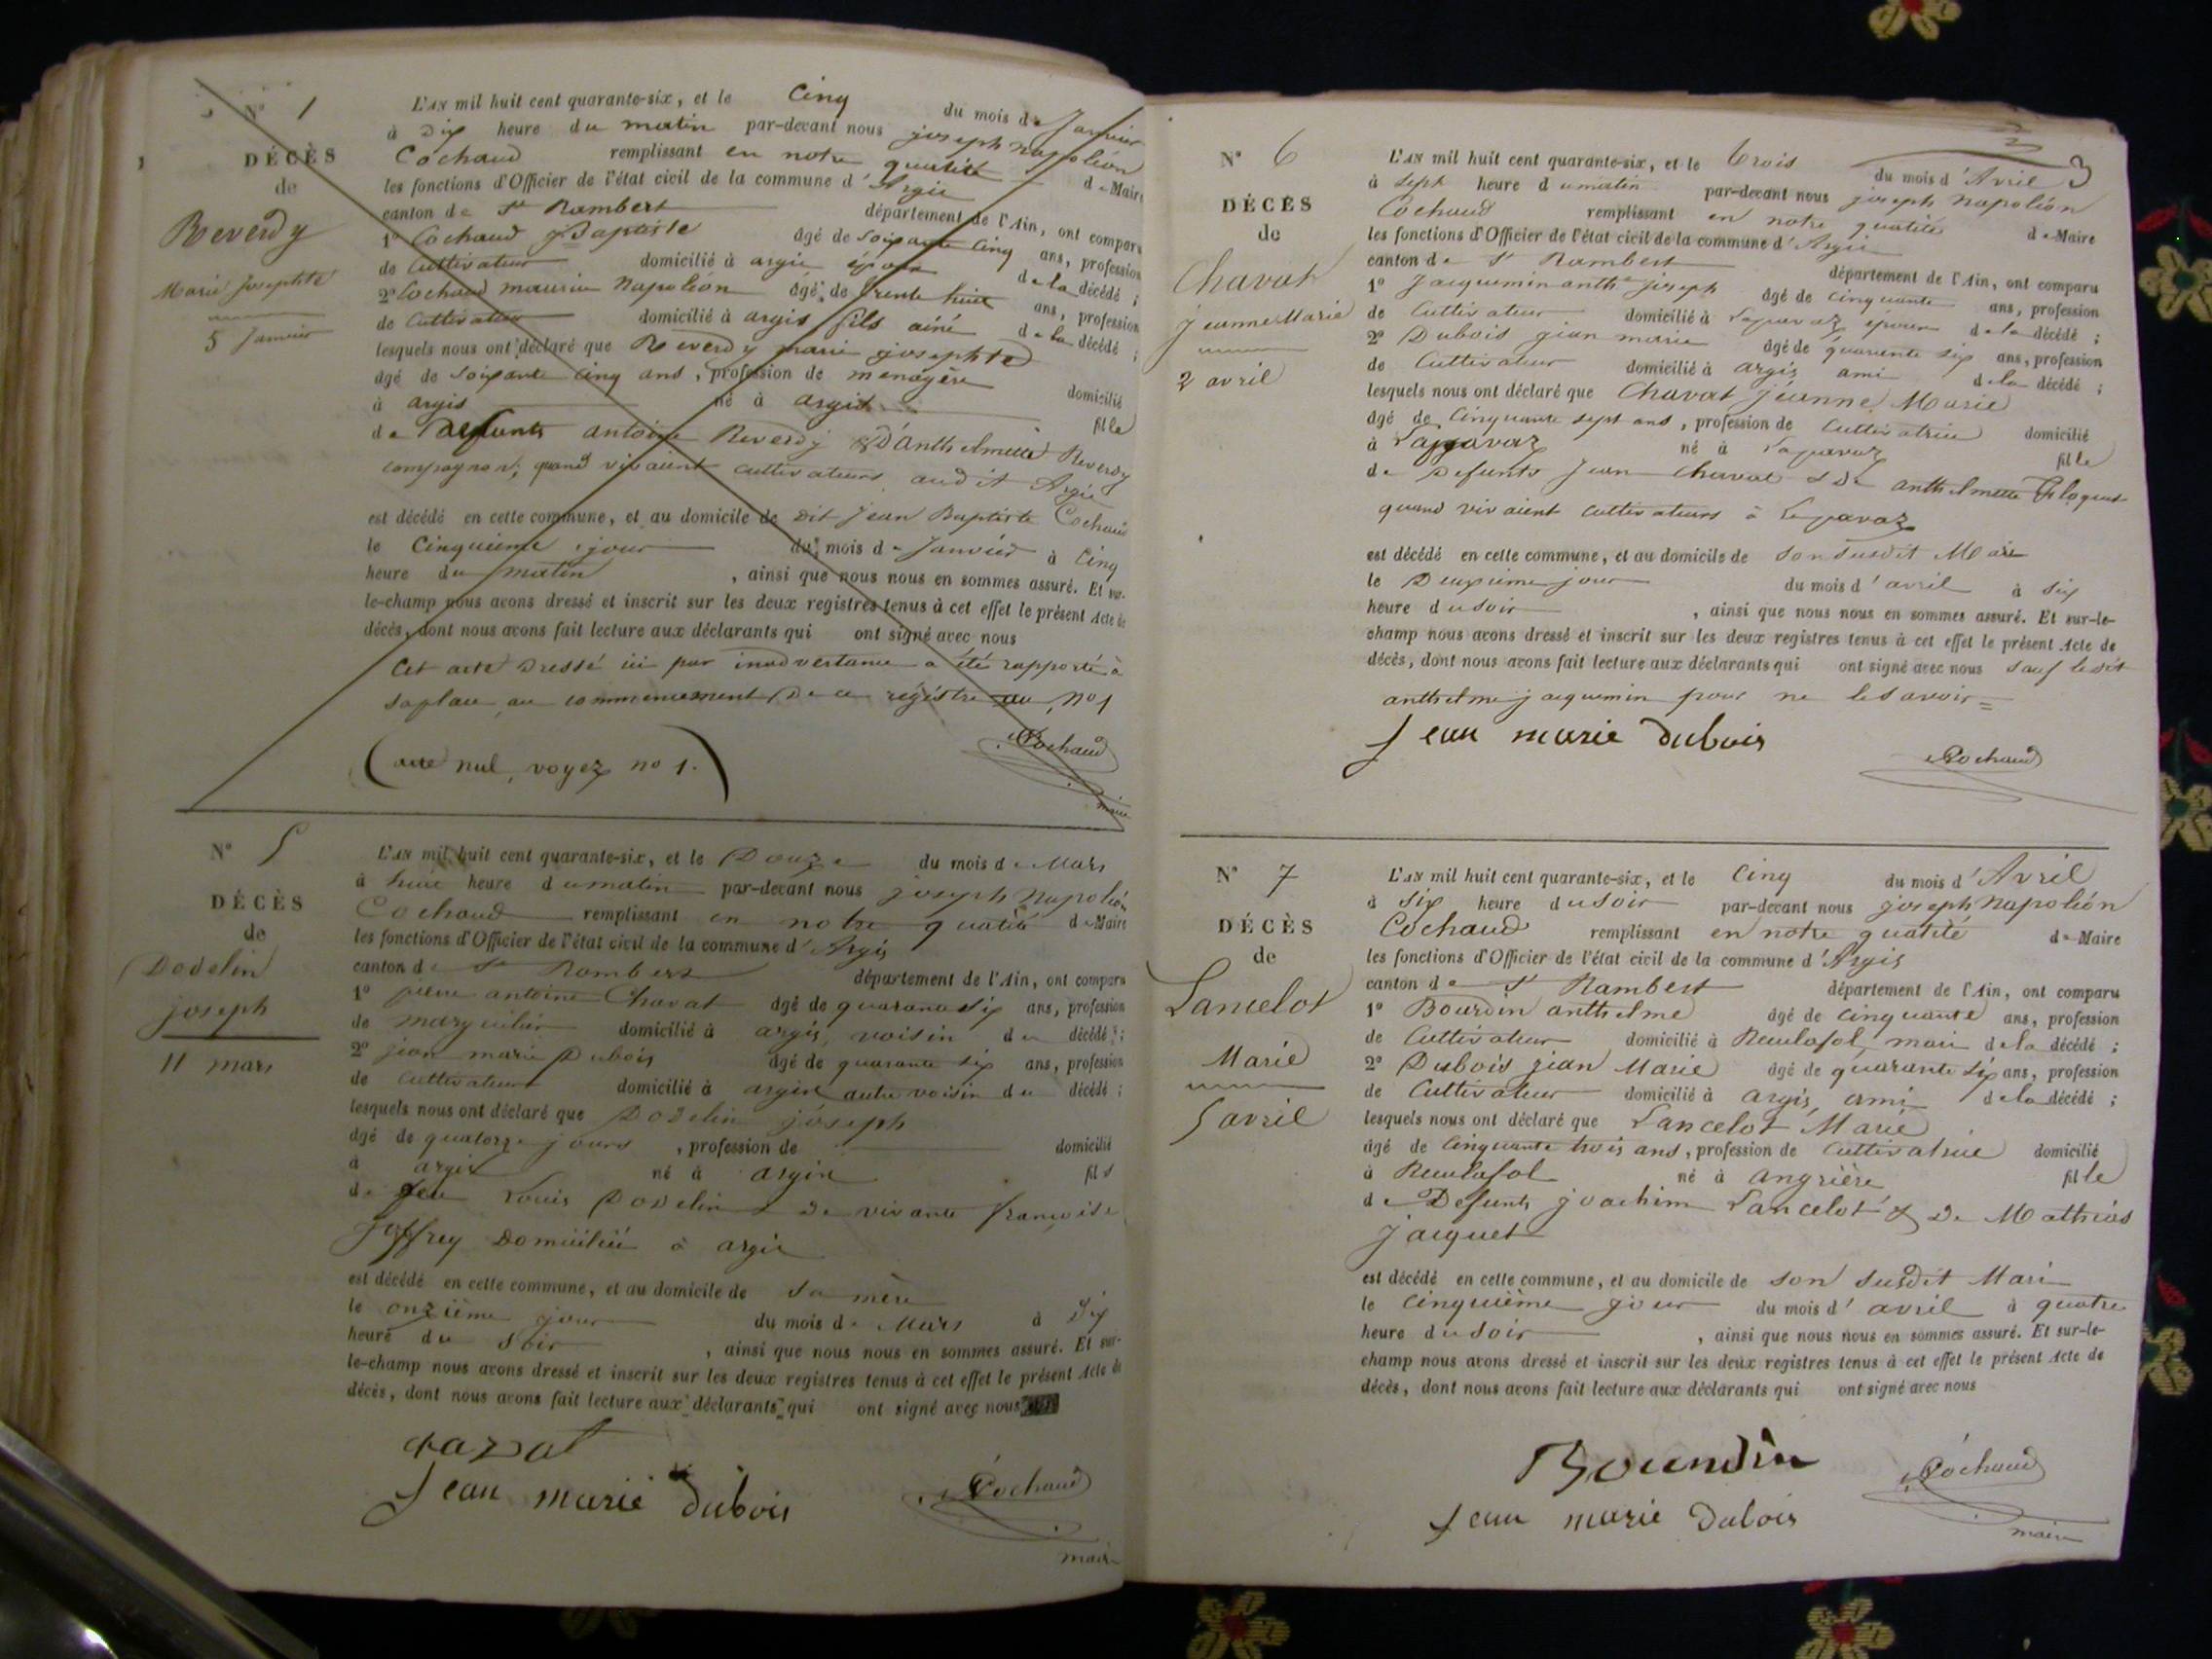 N° 1
DÉCÈS
de
Reverdy
Marie Josephte
5 Janvier
L'AN mil huit cent quarante-six, et le Cinq du mois de Janvier
à Dix heure du matin par-devant nous joseph Napoléon
Cochaud remplissant en notre qualité de Maire
les fonctions d'Officier de l'état civil de la commune d'Argis
canton de St Rambert département de l'Ain, ont comparu
1° Cochaud J Baptiste âgé de soixante cinq ans, profession
de Cultivateur domicilié à argis époux de la décédé ;
2° Cochaud maurice Napoléon âgé de trente huit ans, profession
de Cultivateur domicilié à argis fils ainé de la décédé ;
lesquels nous ont déclaré que Reverdy marie josephte
âgé de soixante cinq ans, profession de menagère domicilié
à argis né à argis fille
de Defunts antoine Reverdy & D'Anthelmette Reverdy
compagnon, quand vivaient cultivateurs audit Argis
est décédé en cette commune, et au domicile de dit Jean Baptiste Cochaud
le Cinquième jour du mois de Janvier à Cinq
heure du matin , ainsi que nous nous en sommes assuré. Et sur-
le-champ nous avons dressé et inscrit sur les deux registres tenus à cet effet le présent Acte de
décès, dont nous avons fait lecture aux déclarants qui ont signé avec nous
Cet acte Dressé ici par inadvertance a été rapporté à
sa place au commencement De ce régistre au no 1
(acte nul, voyez no 1.)
Cochaud
maire
N° 5
DÉCÈS
de
Dodelin
joseph
11 mars
L'AN mil huit cent quarante-six, et le Douze du mois de Mars
à huit heure du matin par-devant nous joseph Napoléon
Cochaud remplissant en notre qualité de Maire
les fonctions d'Officier de l'état civil de la commune d'Argis
canton de St Rambert département de l'Ain, ont comparu
1° pierre antoine Chavat âgé de quarante six ans, profession
de marguilier domicilié à argis, voisin du décédé ;
2° jean marie Dubois âgé de quarante six ans, profession
de Cultivateur domicilié à argis autre voisin du décédé ;
lesquels nous ont déclaré que Dodelin joseph
âgé de quatorze jours , profession de domicilié
à argis né à argis fils
de feu Louis Dodelin & de vivante françoise
Joffrey Domiciliée à argis
est décédé en cette commune, et au domicile de sa mère
le onzième jour du mois de Mars à Dix
heure du soir , ainsi que nous nous en sommes assuré. Et sur-
le-champ nous avons dressé et inscrit sur les deux registres tenus à cet effet le présent Acte de
décès, dont nous avons fait lecture aux déclarants qui ont signé avec nous
Jean marie dubois
Cochaud
maire
3
N° 6
DÉCÈS
de
Chavat
Jeanne Marie
2 avril
L'AN mil huit cent quarante-six, et le trois du mois d'Avril
à sept heure du matin par-devant nous joseph Napoléon
Cochaud remplissant en notre qualité de Maire
les fonctions d'Officier de l'état civil de la commune d'Argis
canton de St Rambert département de l'Ain, ont comparu
1° Jacquemin anthe joseph âgé de cinquante ans, profession
de Cultivateur domicilié à époux de la décédé ;
2° Dubois jean marie âgé de quarante six ans, profession
de Cultivateur domicilié à argis ami de la décédé ;
lesquels nous ont déclaré que Chavat Jeanne Marie
âgé de Cinquante sept ans, profession de Cultivatrice domicilié
à né à fille
de Defunts Jean Chavat & De anthelmette
quand vivaient cultivateurs à
est décédé en cette commune, et au domicile de son susdit Mari
le Deuxième jour du mois d'avril à six
heure du soir , ainsi que nous nous en sommes assuré. Et sur-le-
champ nous avons dressé et inscrit sur les deux registres tenus à cet effet le présent Acte de
décès, dont nous avons fait lecture aux déclarants qui ont signé avec nous sauf le dit
anthelme jacquemin pour ne le savoir
Jean marie dubois
Cochaud
N° 7
DÉCÈS
de
Lancelot
Marie
5 avril
L'AN mil huit cent quarante-six, et le Cinq du mois d'Avril
à Six heure du soir par-devant nous joseph Napoléon
Cochaud remplissant en notre qualité de Maire
les fonctions d'Officier de l'état civil de la commune d'Argis
canton de St Rambert département de l'Ain, ont comparu
1° Bourdin anthelme âgé de cinquante ans, profession
de Cultivateur domicilié à Reculafol, mari de la décédé ;
2° Dubois jean Marie âgé de quarante six ans, profession
de Cultivateur domicilié à argis, ami de la décédé ;
lesquels nous ont déclaré que Lancelot Marie
âgé de Cinquante trois ans, profession de Cultivatrice domicilié
à Reculafol né à angrière fille
de Defunts joachim Lancelot & De Mathias
jacquet
est décédé en cette commune, et au domicile de son susdit Mari
le cinquième jour du mois d'avril à quatre
heure du soir , ainsi que nous nous en sommes assuré. Et sur-le-
champ nous avons dressé et inscrit sur les deux registres tenus à cet effet le présent Acte de
décès, dont nous avons fait lecture aux déclarants qui ont signé avec nous
Bourdin
Jean marie dubois
Cochaud
maire